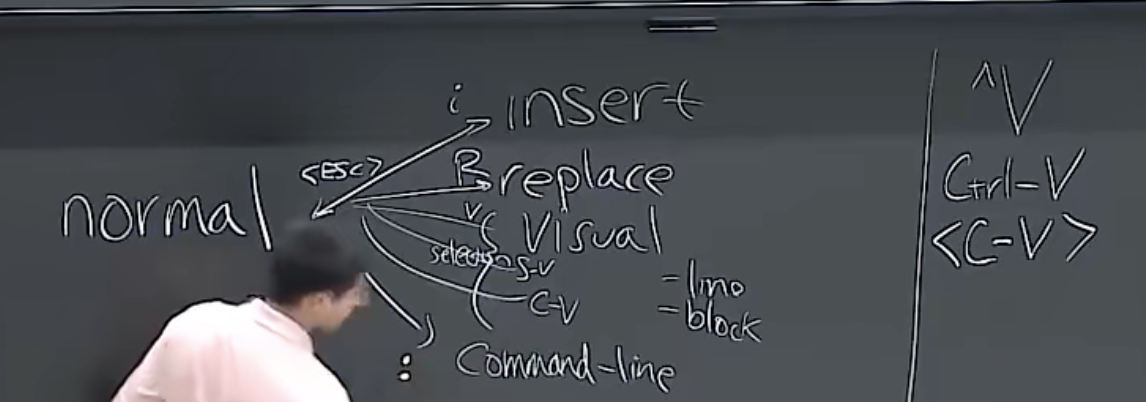 i insert
<ESC>
R replace
normal
v Visual
selection S-V
-line
C-V
-block
: Command-line
^V
Ctrl-V
<C-V>